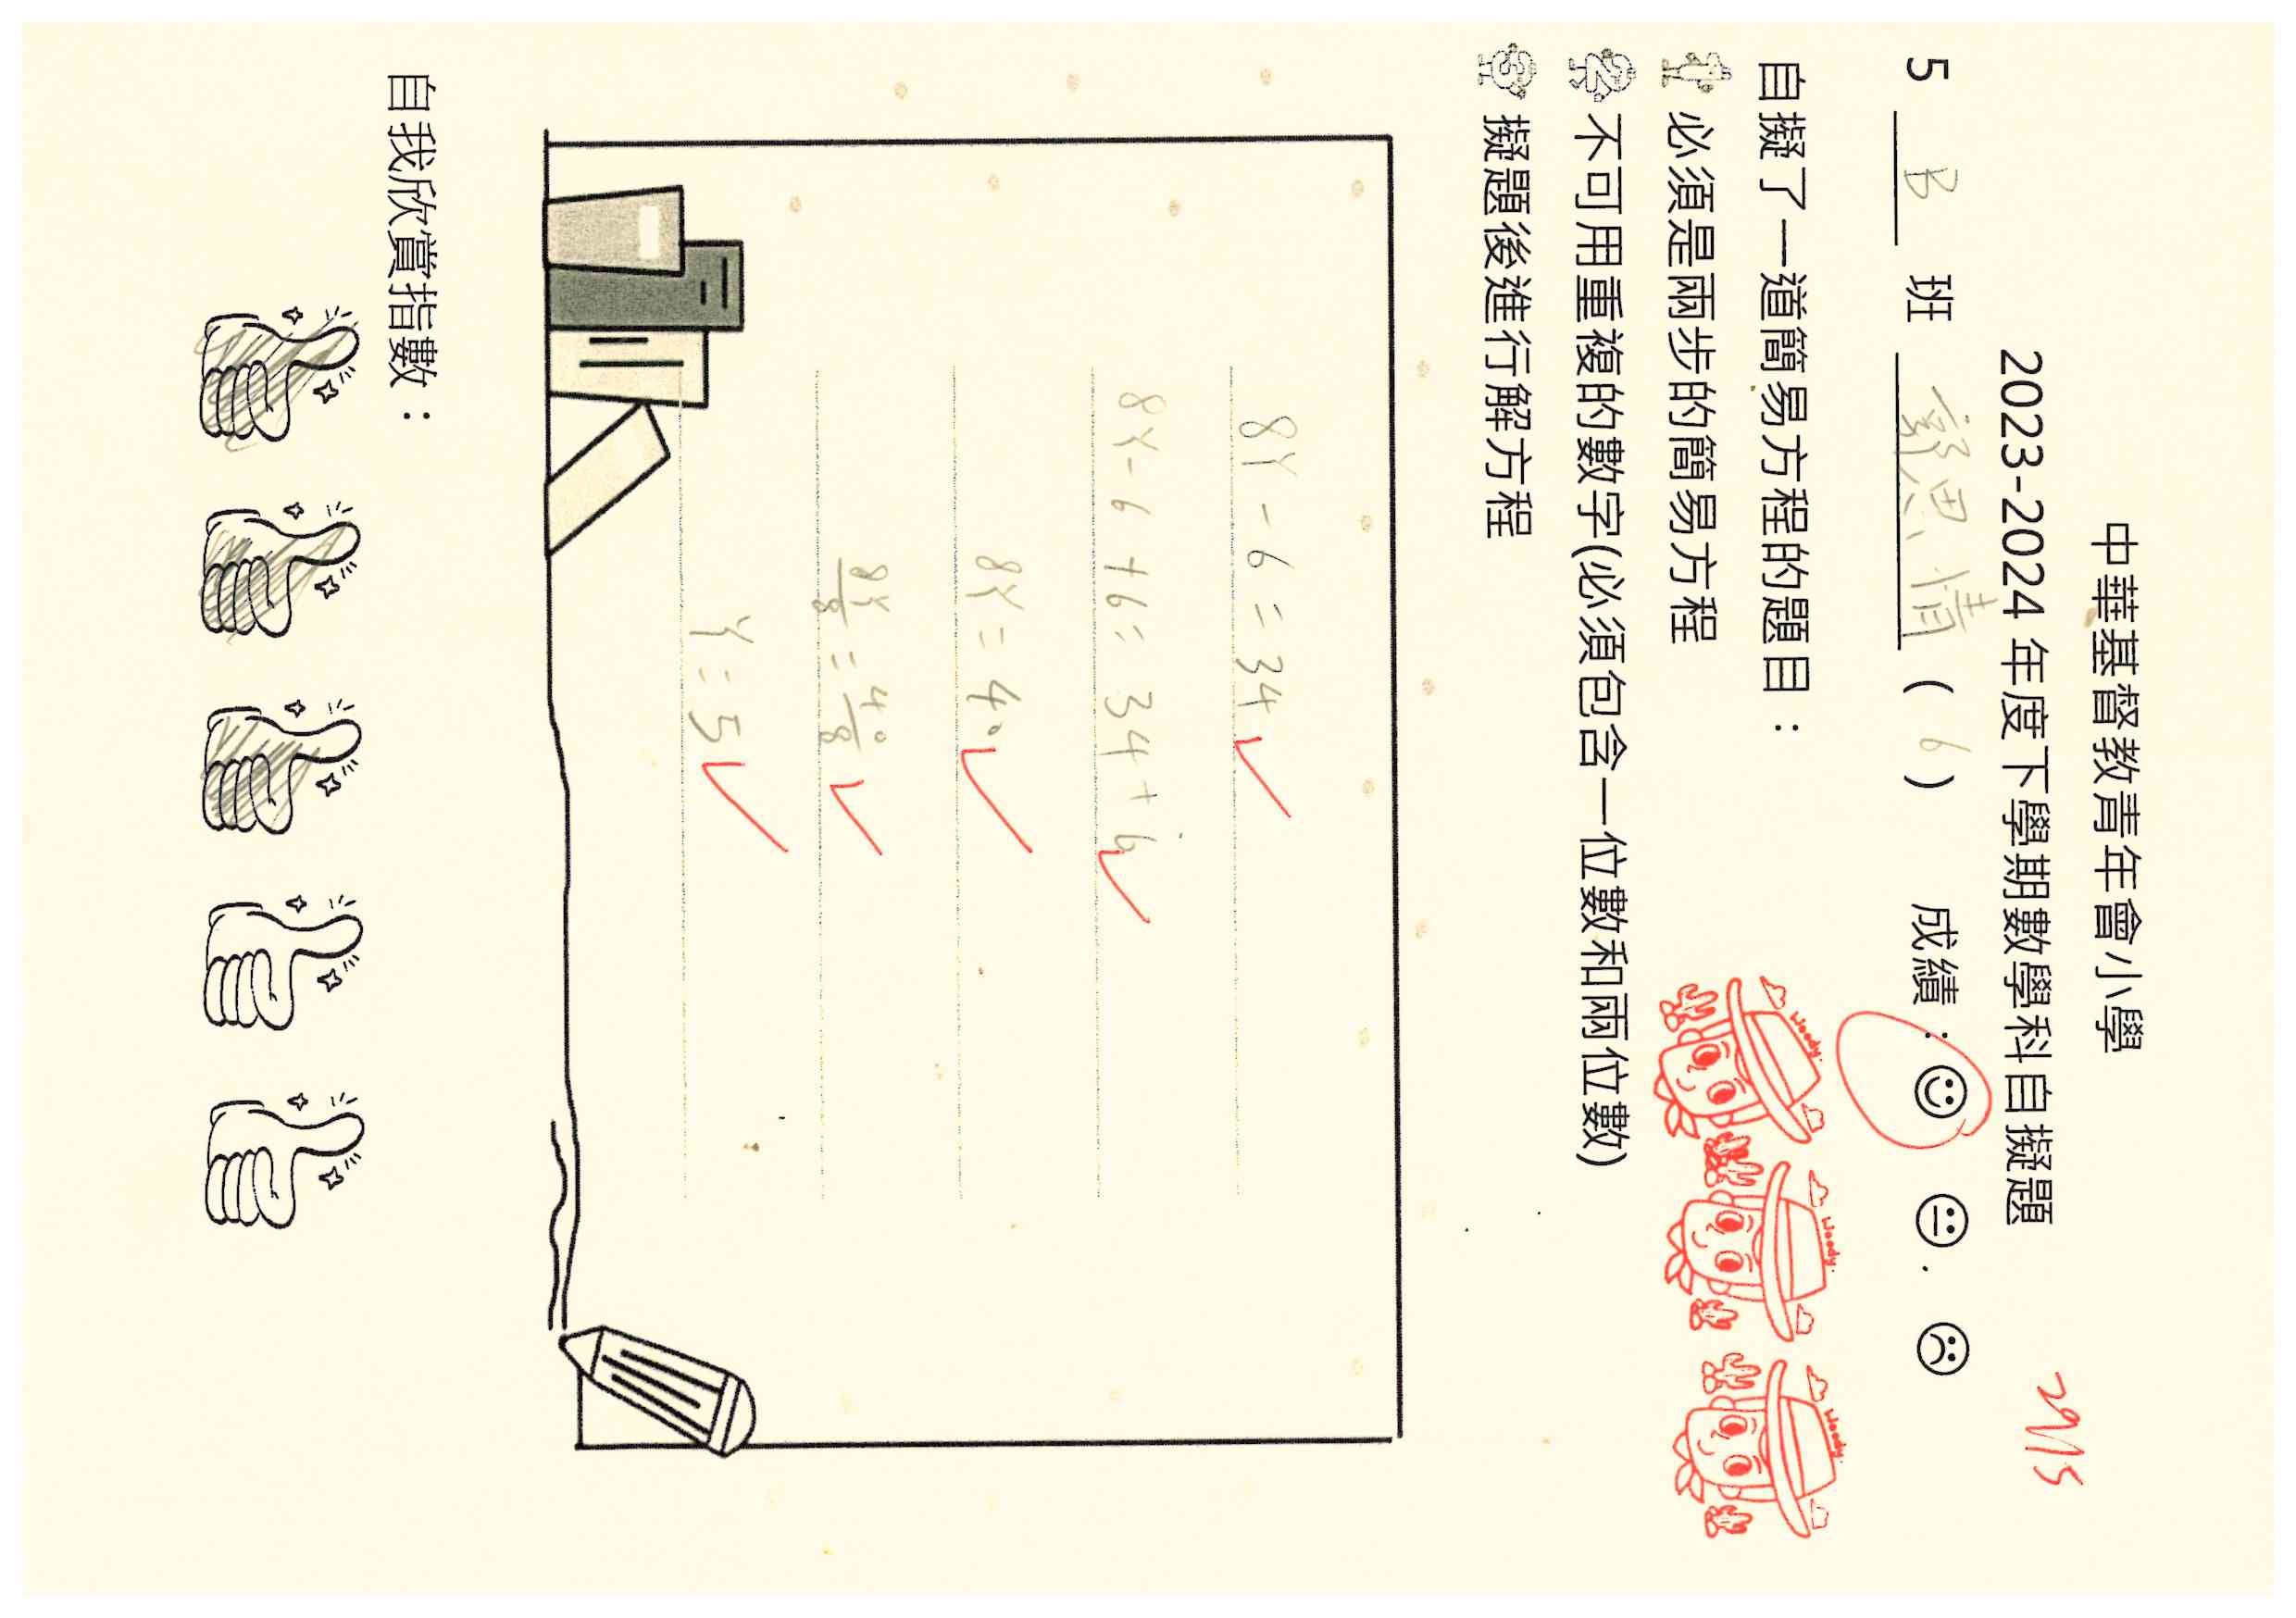 中華基督教青年會小學
2023-2024 年度下學期數學科自擬題
29/5
5 B 班 鄭思晴 ( 6 ) 成績：
自擬了一道簡易方程的題目：
1 必須是兩步的簡易方程
2 不可用重複的數字(必須包含一位數和兩位數)
3 擬題後進行解方程
Woody.
Woody.
Woody.
8Y - 6 = 34
8Y - 6 + 6 = 34 + 6
8Y = 40
8Y/8 = 40/8
Y = 5
自我欣賞指數：